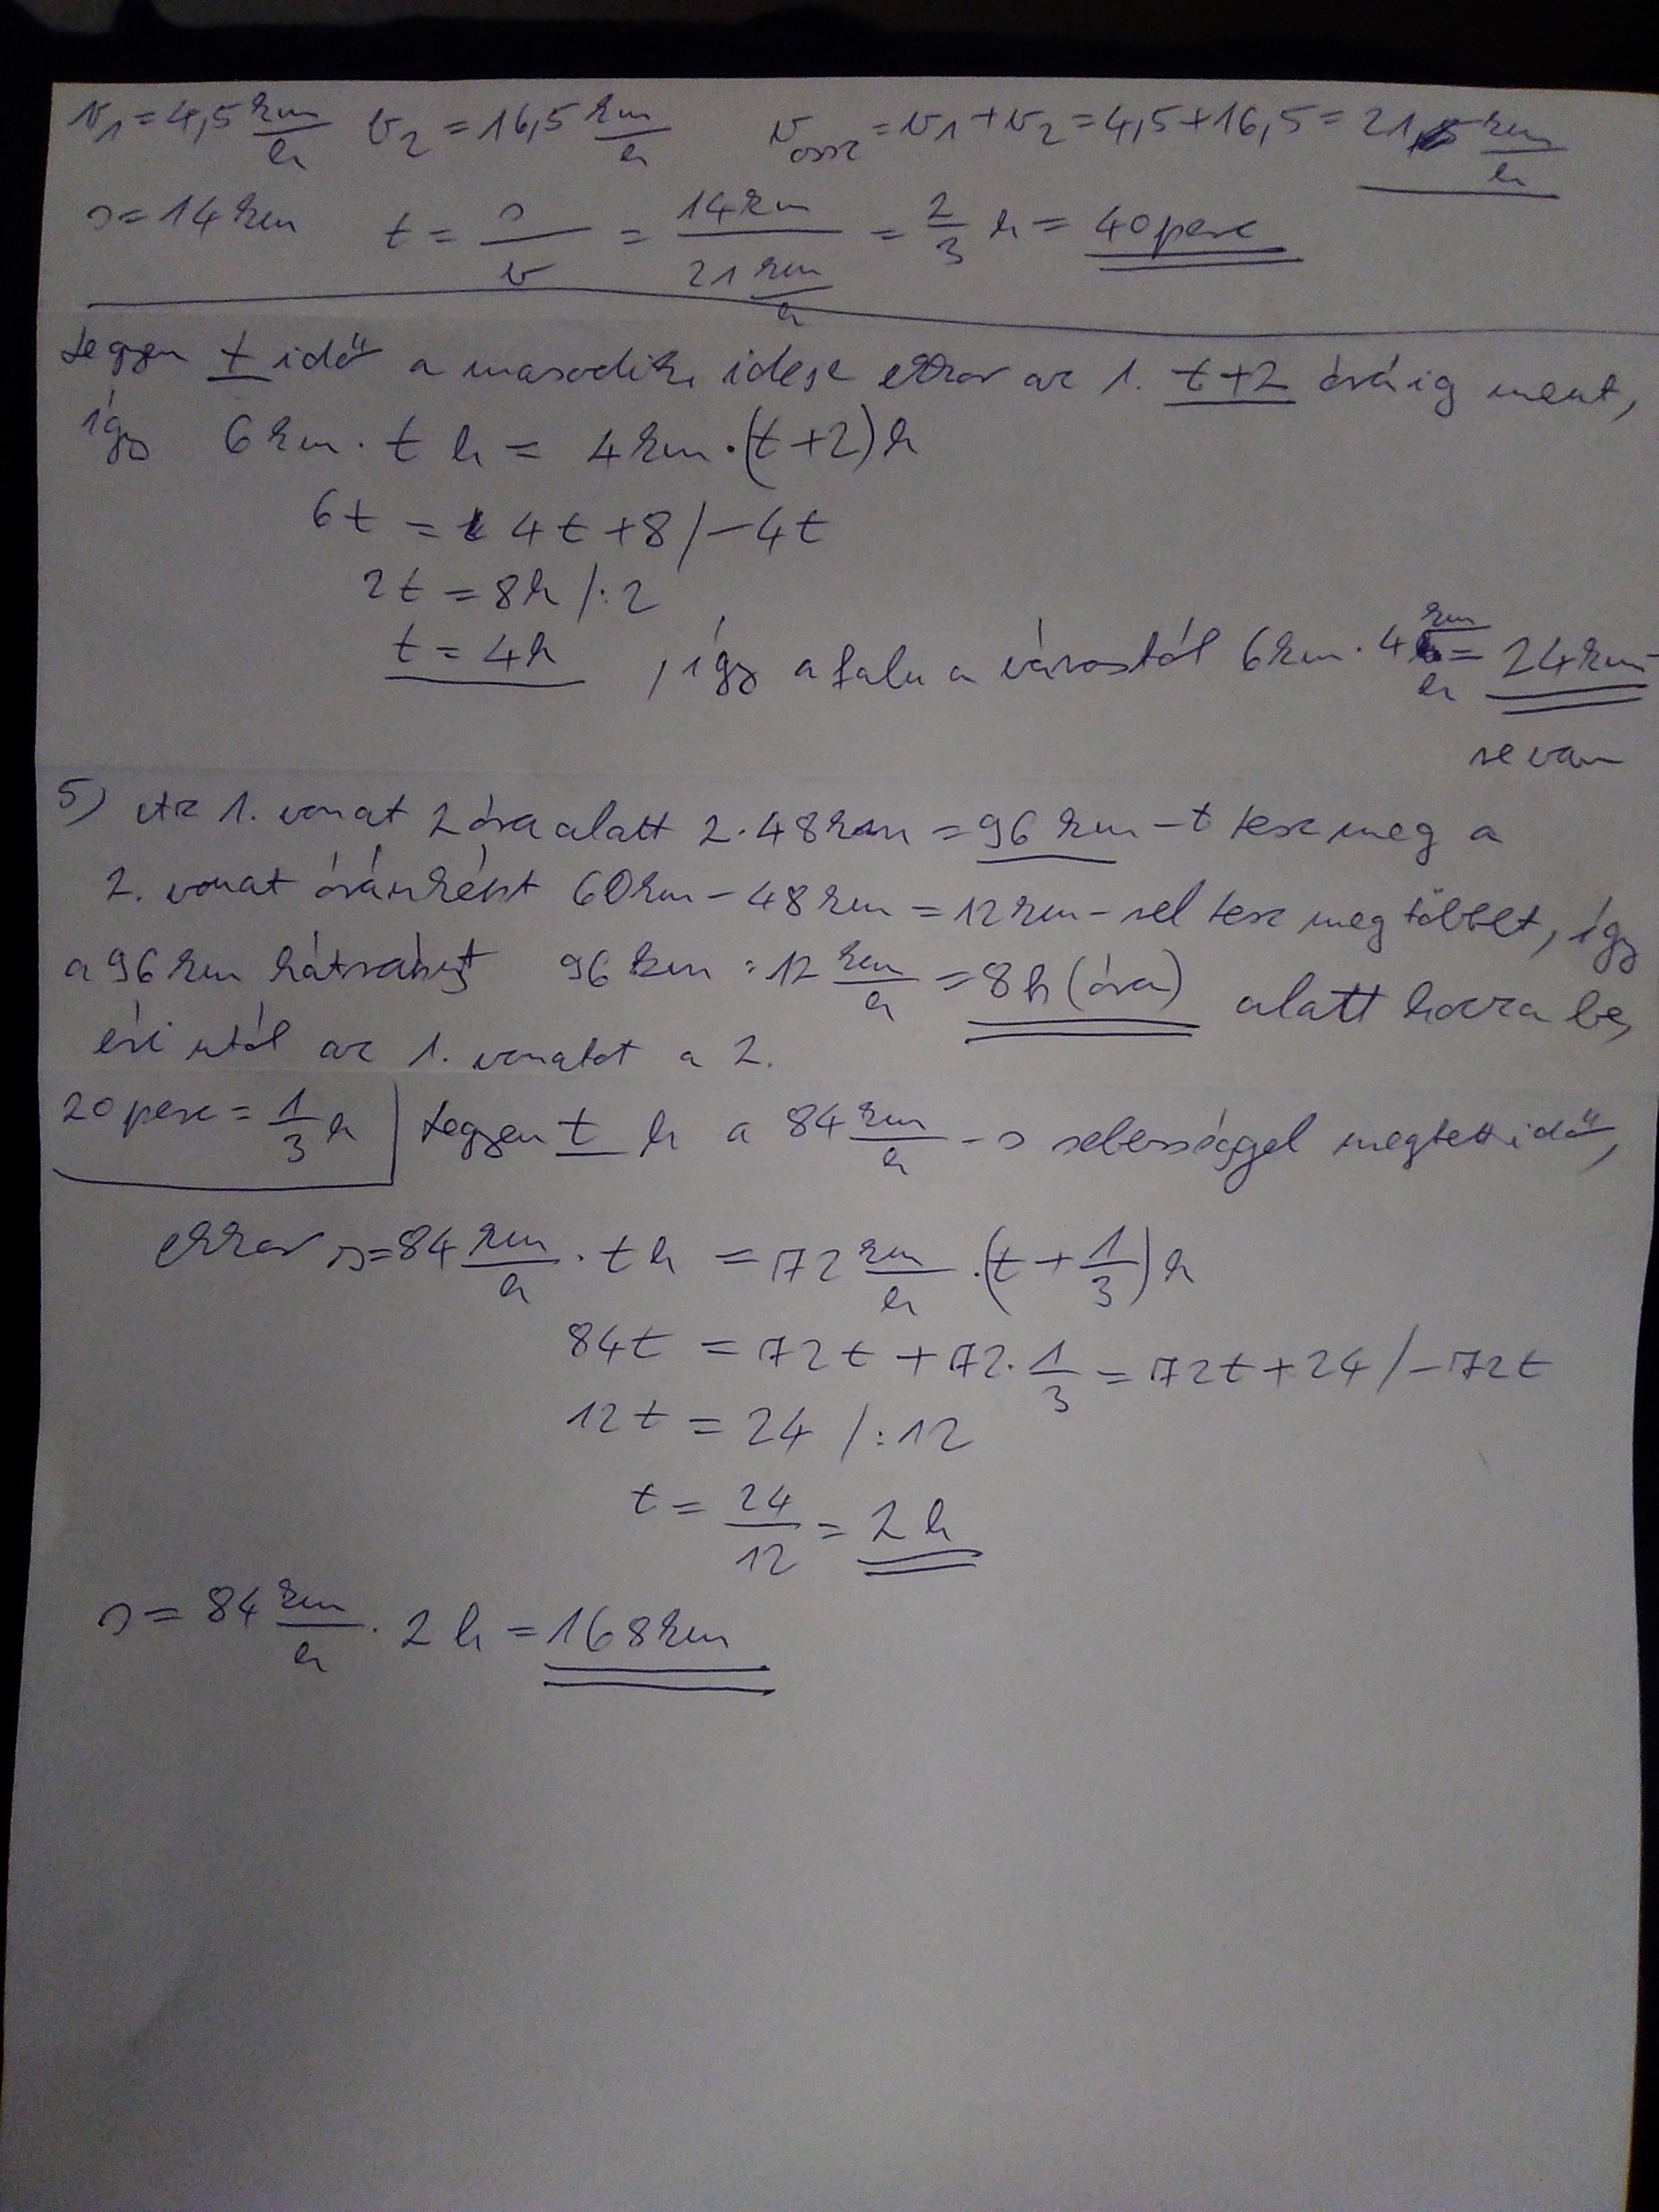 v₁=4,5 km/h v₂=16,5 km/h v össz=v₁+v₂=4,5+16,5=21 km/h
s=14km t=s/v=14km/(21 km/h)=2/3 h=40perc
Legyen t idő a második ideje ekkor az 1. t+2 óráig ment,
így 6km·t h=4km·(t+2)h
6t=4t+8/-4t
2t=8h/:2
t=4h, így a falu a várostól 6km·4 km/h=24km-
re van
5) Az 1. vonat 2 óra alatt 2·48km=96km-t tesz meg a
2. vonat óránként 60km-48km=12km-rel tesz meg többet, így
a 96km hátrányt 96km:12 km/h=8h(óra) alatt hozza be,
éri utól az 1. vonatot a 2.
20perc=1/3 h Legyen t h a 84 km/h-s sebességgel megtett idő,
ekkor s=84 km/h·t h=72 km/h·(t+1/3)h
84t=72t+72·1/3=72t+24/-72t
12t=24/:12
t=24/12=2h
s=84 km/h·2h=168km